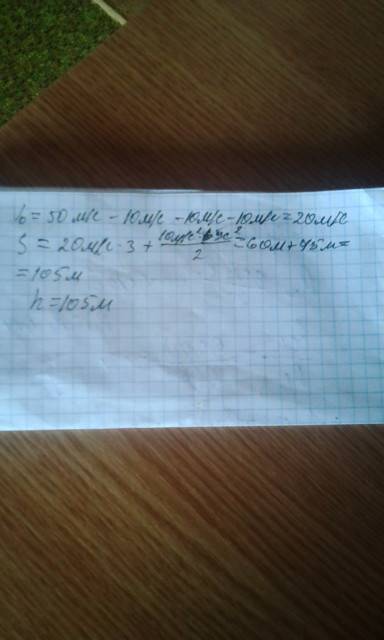 V₀ = 50 м/с - 10 м/с - 10 м/с - 10 м/с = 20 м/с
S = 20 м/с · 3 + 10 м/с² · 9 с² / 2 = 60 м + 45 м =
= 105 м
h = 105 м